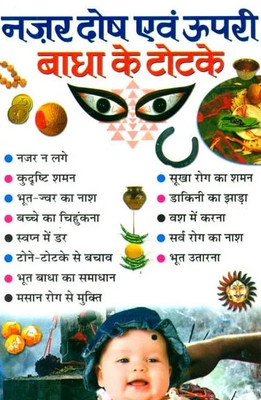 नज़र दोष एवं ऊपरी
बाधा के टोटके
नजर न लगे
कुदृष्टि शमन
भूत-ज्वर का नाश
बच्चे का चिहुंकना
स्वप्न में डर
टोने-टोटके से बचाव
भूत बाधा का समाधान
मसान रोग से मुक्ति
सूखा रोग का शमन
डाकिनी का झाड़ा
वश में करना
सर्व रोग का नाश
भूत उतारना